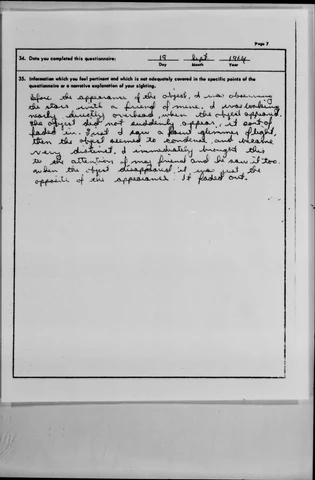 Page 7
34. Date you completed this questionnaire: 19 Sept 1964
Day Month Year
35. Information which you feel pertinent and which is not adequately covered in the specific points of the
questionnaire or a narrative explanation of your sighting.
Before the appearance of the object, I was observing
the stars with a friend of mine. I was looking
nearly directly overhead when the object appeared.
The object did not suddenly appear, it sort of
faded in. First I saw a faint glimmer of light,
then the object seemed to condense and became
very distinct. I immediately brought this
to the attention of my friend and he saw it too.
When the object disappeared it was just the
opposite of the appearance. It faded out.